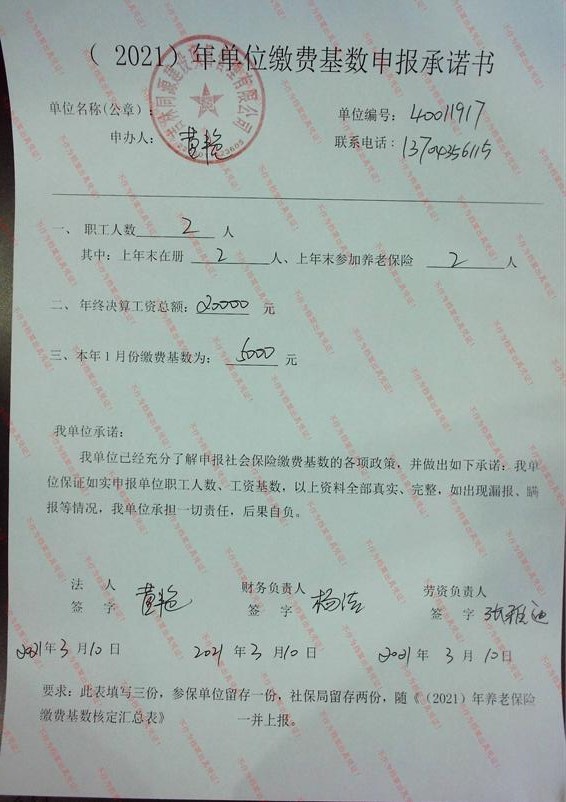 （ 2021）年单位缴费基数申报承诺书
单位名称(公章)：
单位编号：40011917
申办人：黄艳
联系电话：13704356115
一、 职工人数 2 人
其中：上年末在册 2 人、上年末参加养老保险 2 人
二、年终决算工资总额：20000 元
三、本年1月份缴费基数为： 5000 元
我单位承诺：
我单位已经充分了解申报社会保险缴费基数的各项政策，并做出如下承诺：我单
位保证如实申报单位职工人数、工资基数，以上资料全部真实、完整，如出现漏报、瞒
报等情况，我单位承担一切责任，后果自负。
法 人 财务负责人 劳资负责人
签 字 黄艳 签 字 杨洁 签 字 张雅迪
2021年3月10日 2021年3月10日 2021年3月10日
要求：此表填写三份，参保单位留存一份，社保局留存两份，随《（2021）年养老保险
缴费基数核定汇总表》 一并上报。